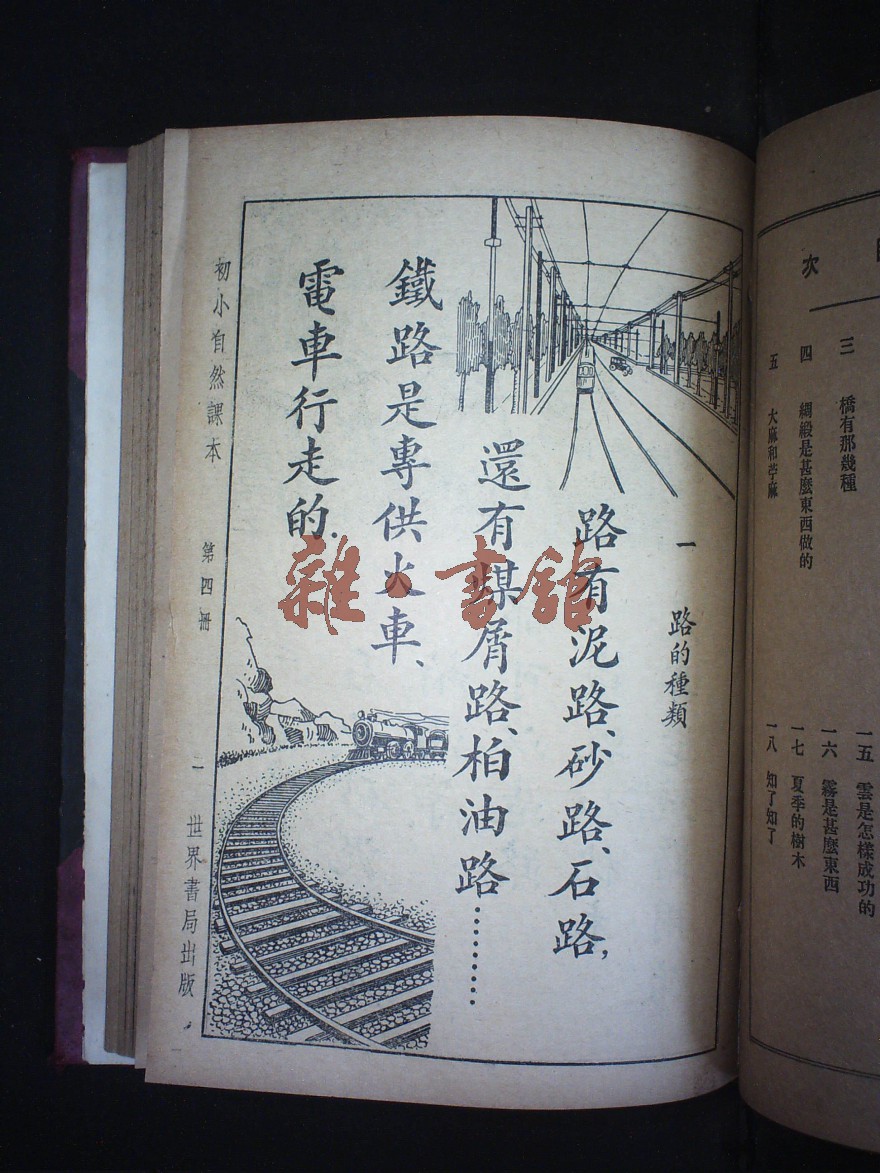 次
三 橋有那幾種
四 綢緞是甚麼東西做的
五 大麻和苧麻
一五 雲是怎樣成功的
一六 霧是甚麼東西
一七 夏季的樹木
一八 知了知了
一 路的種類
路有泥路、砂路、石路,
還有煤屑路、柏油路………
鐵路是專供火車、
電車行走的.
初小自然課本 第四冊 一 世界書局出版
雜·書館